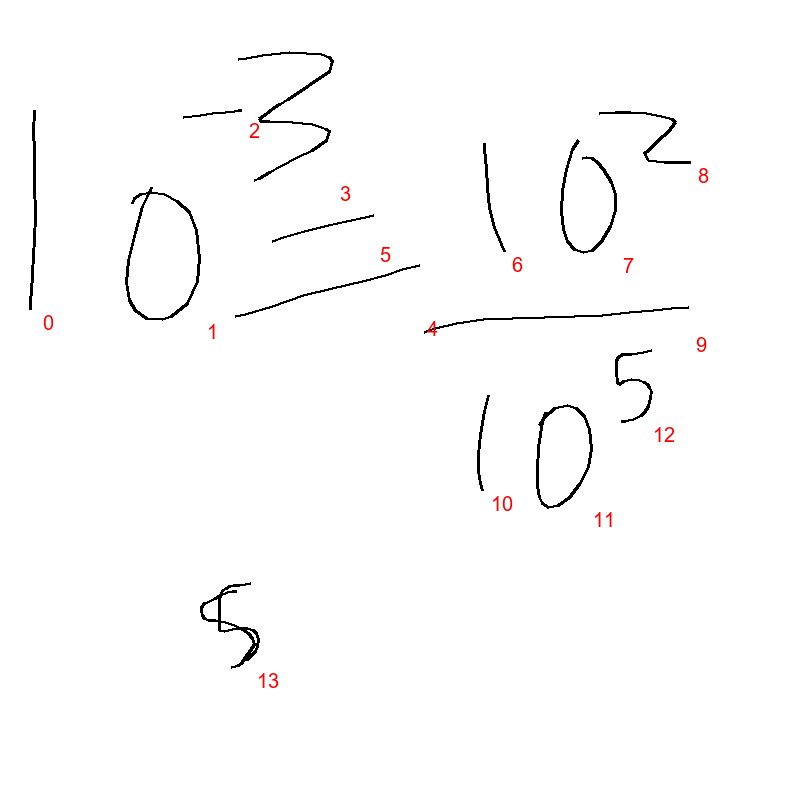 10^{-3} = \frac{10^2}{10^5}
0 1 2 3 4 5 6 7 8 9 10 11 12 13